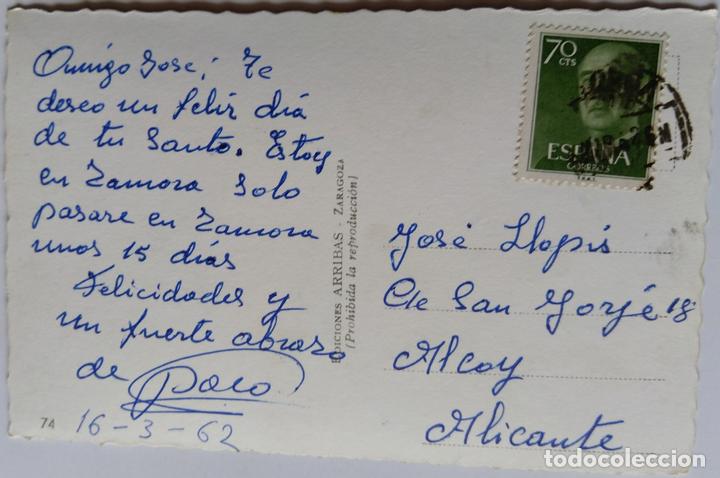 Amigo José; Te
deseo un feliz día
de tu Santo. Estoy
en Zamora Solo
pasare en Zamora
unos 15 días
Felicidades y
un fuerte abrazo
de Paco
16-3-62
74
EDICIONES ARRIBAS - ZARAGOZA
(Prohibida la reproducción)
70
CTS
ESPAÑA
CORREOS
José Llopis
C/e San Jorjé 18
Alcoy
Alicante
todocoleccion.net